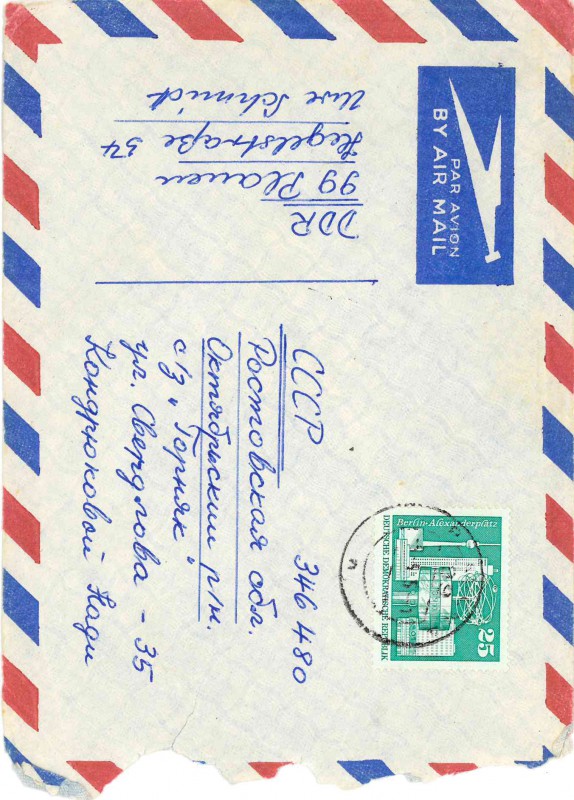 PAR AVION
BY AIR MAIL
Uwe Schmidt
Hegelstraße 54
99 Plauen
DDR
СССР 346 480
Ростовская обл.
Октябрьский р/н.
с/з „Горняк"
ул. Свердлова - 35
Кондрюковой Нади
Berlin-Alexanderplatz
DEUTSCHE DEMOKRATISCHE REPUBLIK
25